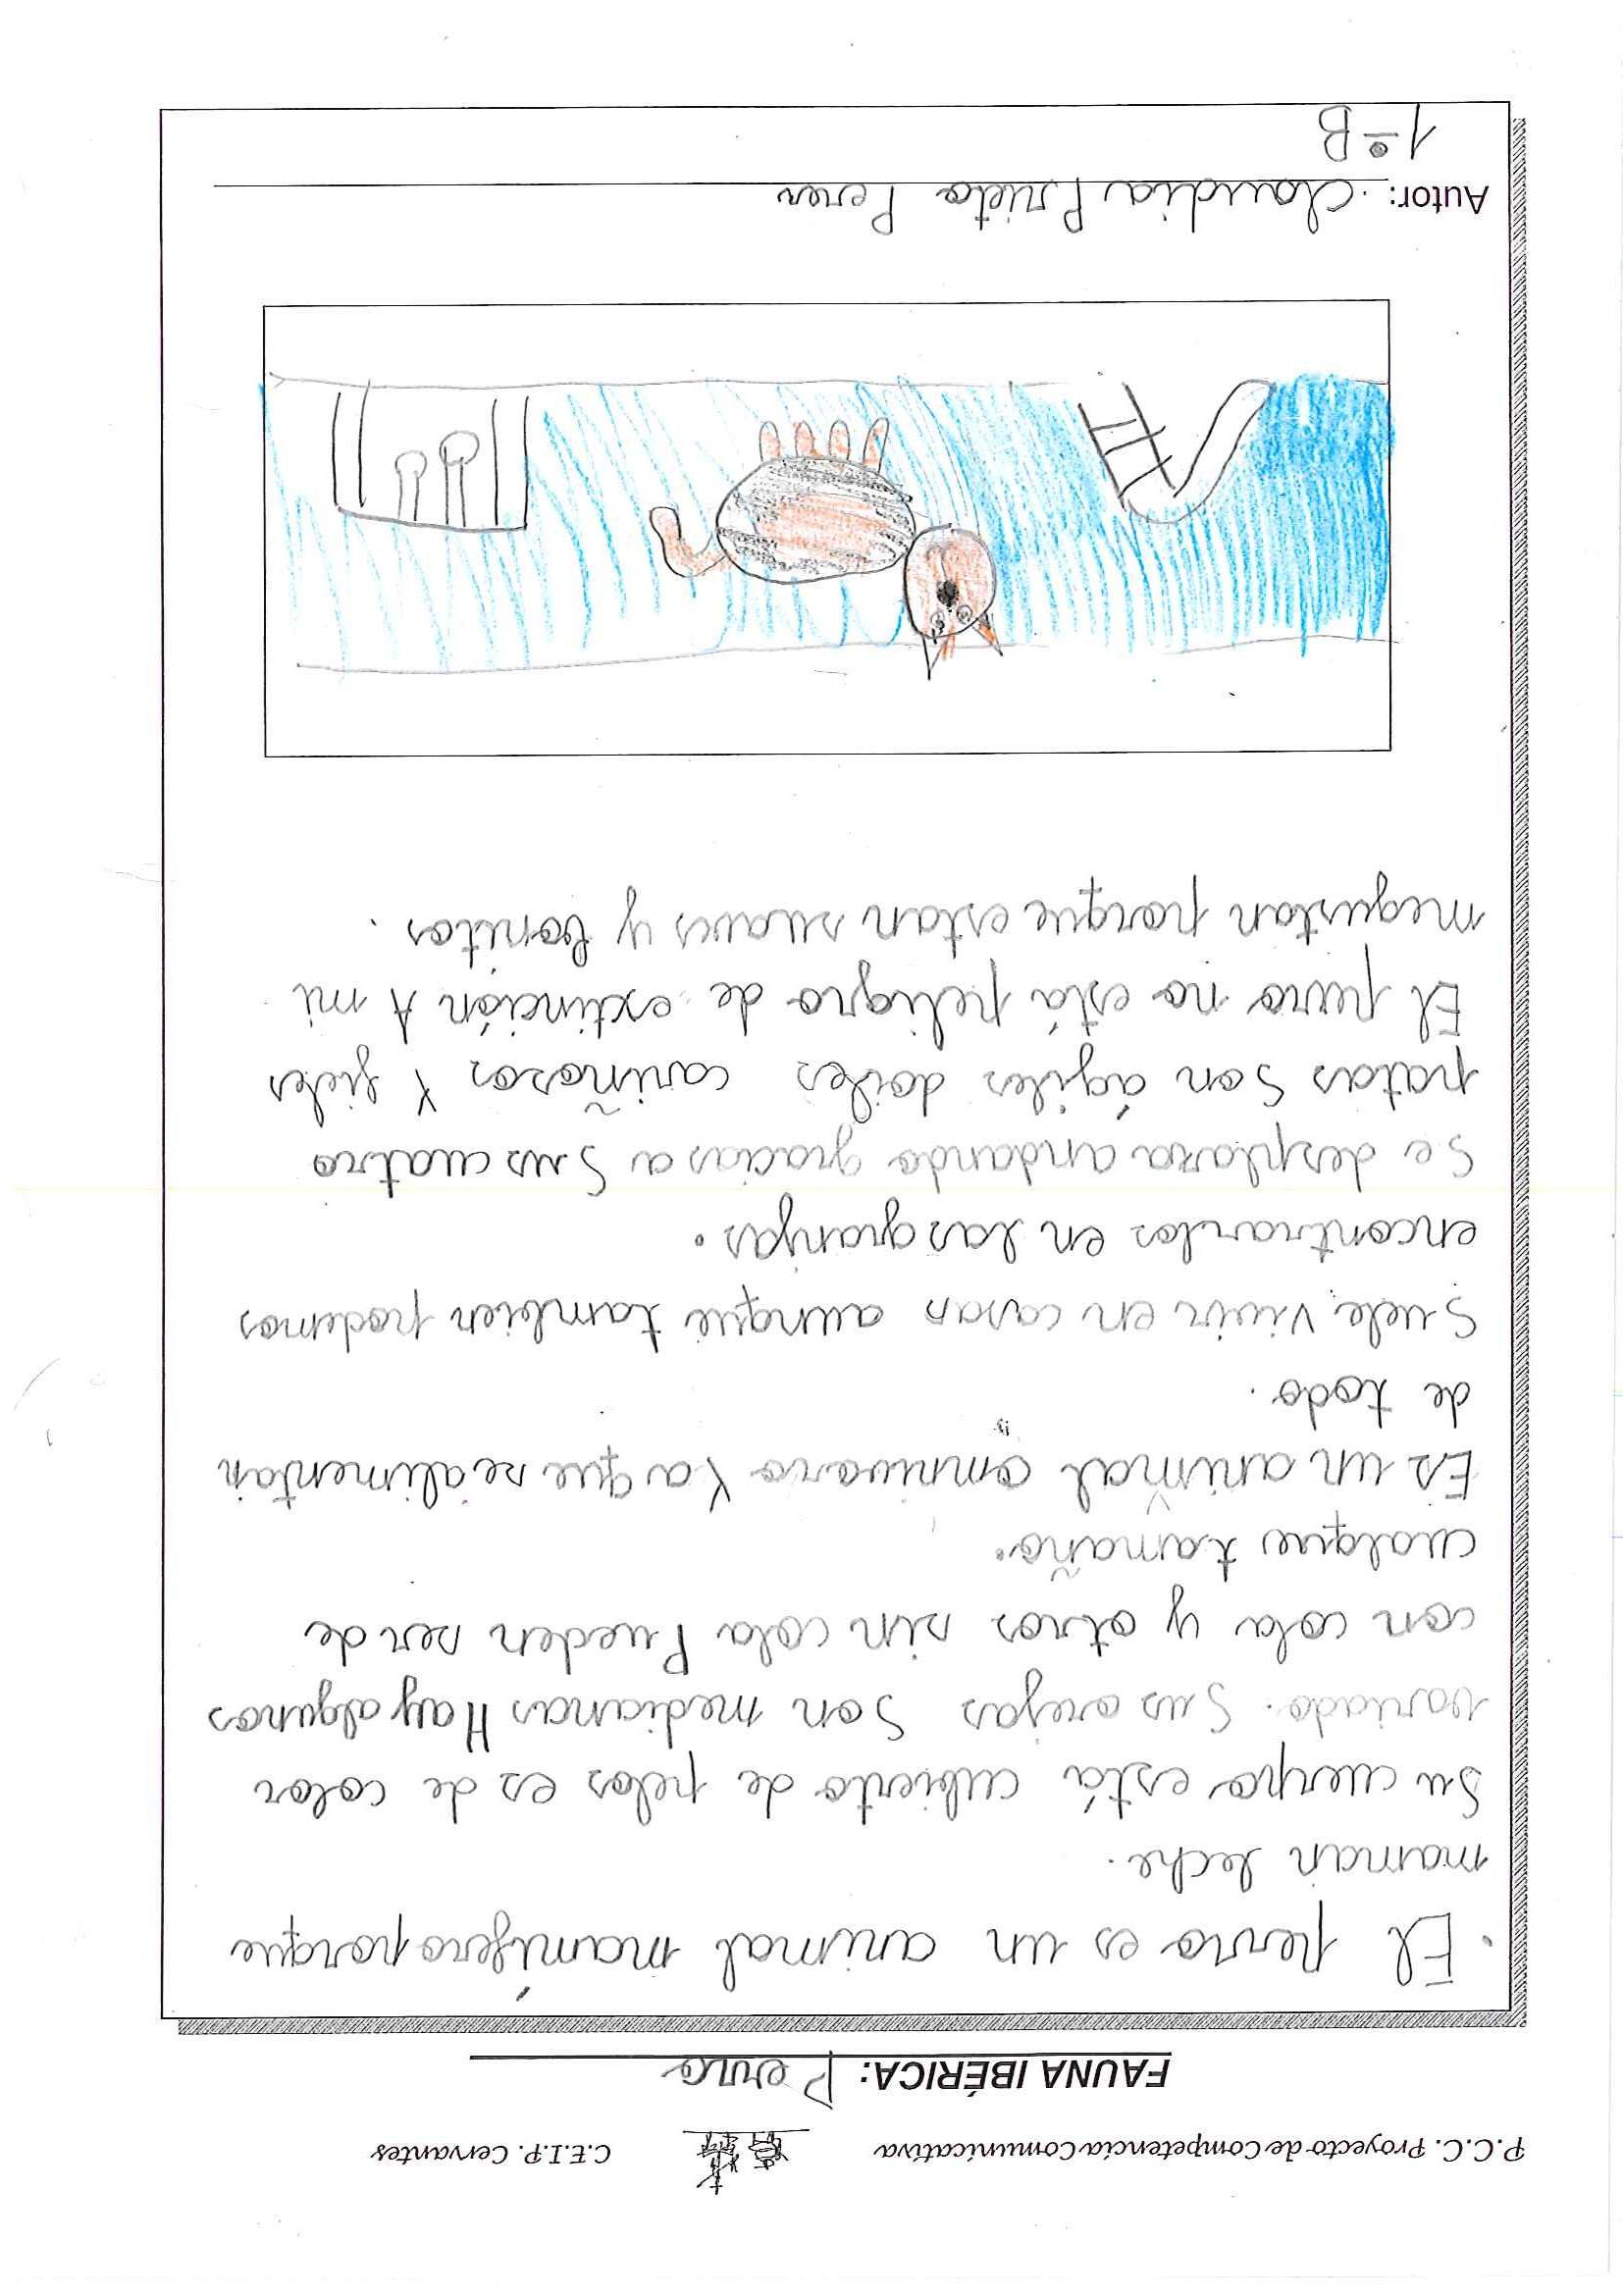 P.C.C. Proyecto de Competencia Comunicativa C.E.I.P. Cervantes
FAUNA IBÉRICA: Perro
El perro es un animal mamífero porque
maman leche.
Su cuerpo está cubierto de pelos es de color
variado. Sus orejas Son medianas Hay algunos
con cola y otros sin cola Pueden ser de
cualquier tamaño.
Es un animal omnivoro Ya que se alimentan
de todo.
Suele vivir en casas aunque tambien podemos
encontrarlos en las granjas.
Se desplaza andando gracias a Sus cuatro
patas Son ágiles dociles cariñosos Y fieles
El perro no está peligro de extinción A mi
megustan porque estan suaves y bonitos.
Autor: Claudia Prieto Perez
1º B